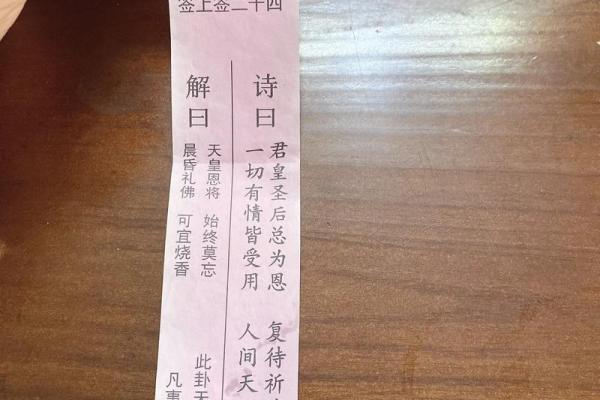 四十二签上签
诗曰
君皇圣后总为恩 复待祈
一切有情皆受用 人间天
解曰
天皇恩将 始终莫忘 此卦
晨昏礼佛 可宜烧香 凡事